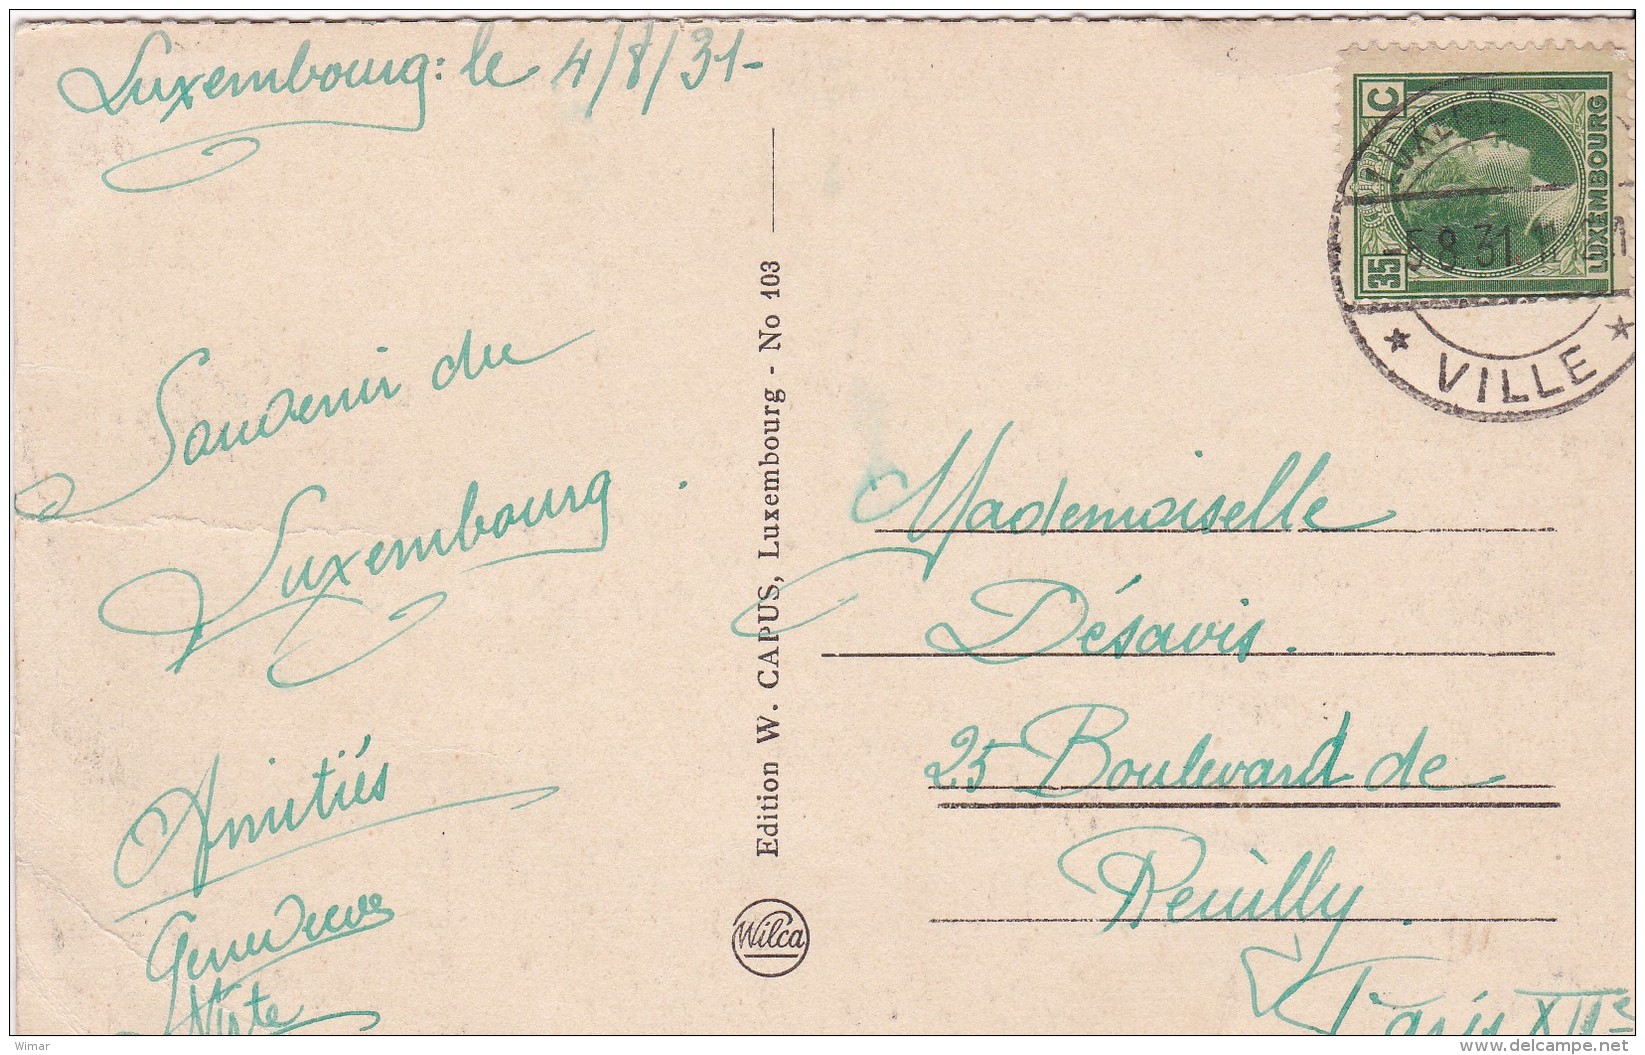 Luxembourg: le 4/8/31-
Souvenir du
Luxembourg.
Amitiés
Geneviève
Edition W. CAPUS, Luxembourg - No 103
Wilca
35 C
LUXEMBOURG
5 8 31. 11
* VILLE *
Mademoiselle
Désavis.
25 Boulevard de
Reuilly.
Paris XIIe
Wimar
www.delcampe.net